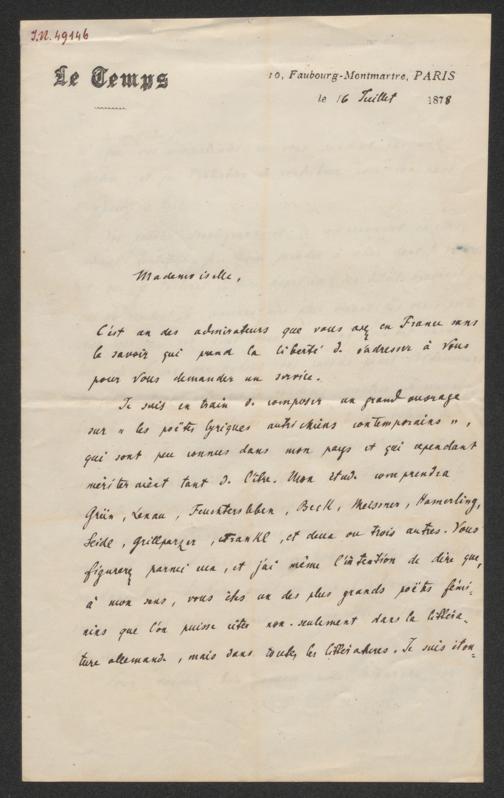 I.N. 49146
Le Temps
10, Faubourg-Montmartre, PARIS
le 16 Juillet 1878
Mademoiselle,
C'est un des admirateurs que vous avez en France sans
le savoir qui prend la liberté de s'adresser à Vous
pour Vous demander un service.
Je suis en train de composer un grand ouvrage
sur « les poëtes lyriques autrichiens contemporains »,
qui sont peu connus dans mon pays et qui cependant
mériteraient tant de l'être. Mon étude comprendra
Grün, Lenau, Feuchtersleben, Beck, Meissner, Hamerling,
Seidl, Grillparzer, Frankl, et deux ou trois autres. Vous
figurerez parmi eux, et j'ai même l'intention de dire que,
à mon sens, vous êtes un des plus grands poëtes fémi-
nins que l'on puisse citer non-seulement dans la littéra-
ture allemande, mais dans toutes les littératures. Je suis éton-